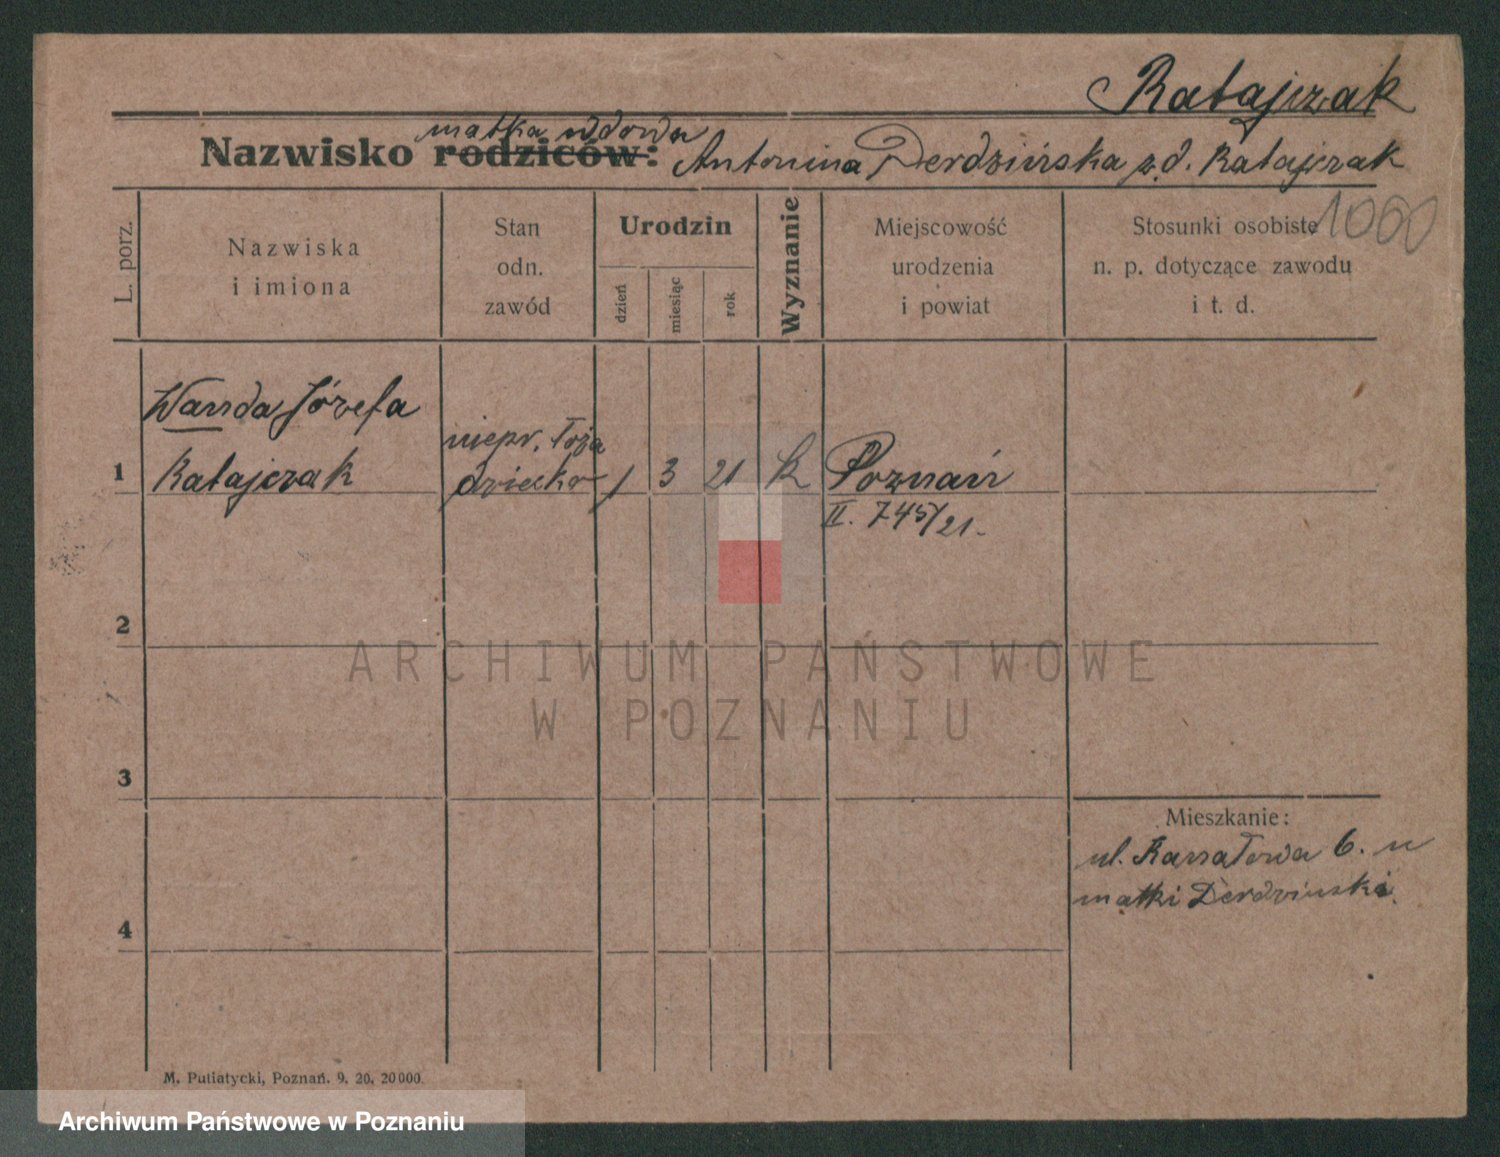 Ratajczak
matka wdowa
Nazwisko rodziców: Antonina Derdzińska z.d. Ratajczak
1060
L. porz.
Nazwiska
i imiona
Stan
odn.
zawód
Urodzin
dzień
miesiąc
rok
Wyznanie
Miejscowość
urodzenia
i powiat
Stosunki osobiste
n. p. dotyczące zawodu
i t. d.
Wanda Józefa
niepr. łoża
1 Ratajczak dziecko 1 3 21 k Poznań
II. 745/21.
2
ARCHIWUM PAŃSTWOWE
W POZNANIU
3
Mieszkanie:
ul. 6. u
matki Derdzińskiej
4
M. Putiatycki, Poznań. 9. 20. 20000.
Archiwum Państwowe w Poznaniu